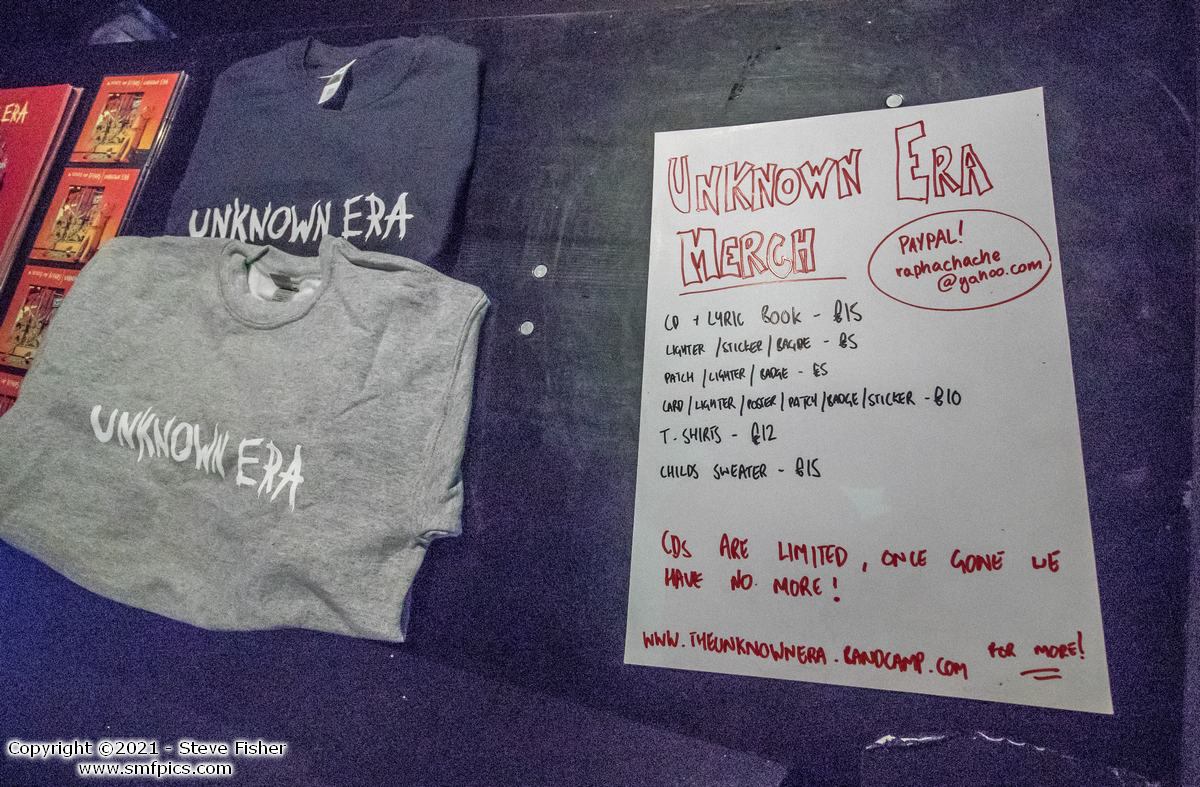 ERA
UNKNOWN ERA
UNKNOWN ERA
UNKNOWN ERA
MERCH
PAYPAL!
raphachache
@yahoo.com
CD + LYRIC BOOK - £15
LIGHTER / STICKER / BAGDE - £5
PATCH / LIGHTER / BADGE - £5
CARD / LIGHTER / POSTER / PATCH / BADGE / STICKER - £10
T-SHIRTS - £12
CHILDS SWEATER - £15
CDS ARE LIMITED, ONCE GONE WE
HAVE NO MORE!
WWW.THEUNKNOWNERA.BANDCAMP.COM FOR MORE!
Copyright ©2021 - Steve Fisher
www.smfpics.com